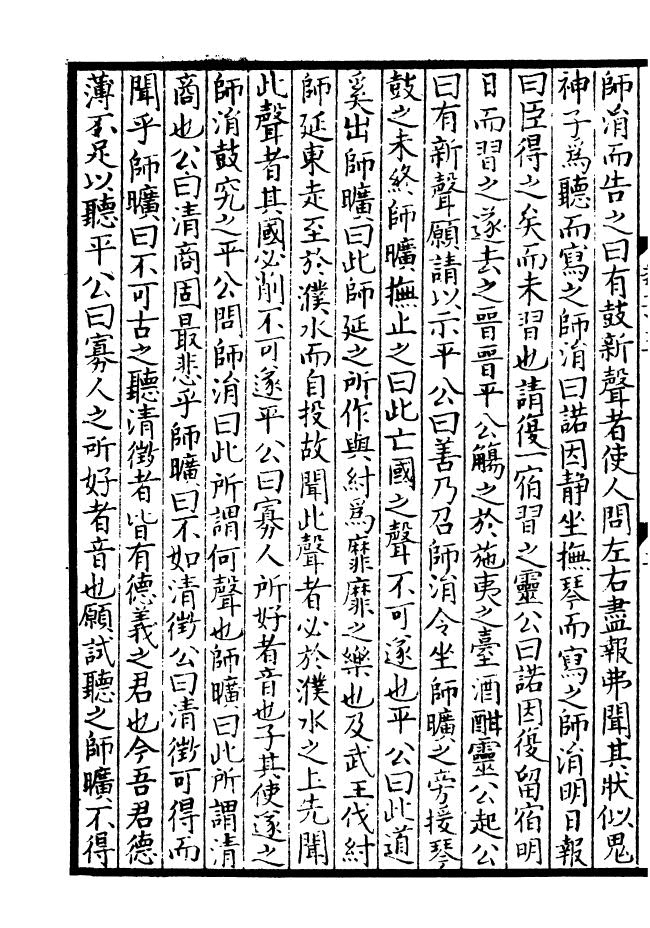 師涓而告之曰有鼓新聲者使人問左右盡報弗聞其狀似鬼
神子爲聽而寫之師涓曰諾因静坐撫琴而寫之師涓明日報
曰臣得之矣而未習也請復一宿習之靈公曰諾因復留宿明
日而習之遂去之晉晉平公觴之於施夷之臺酒酣靈公起公
曰有新聲願請以示平公曰善乃召師涓令坐師曠之旁接琴
鼓之未終師曠撫止之曰此亡國之聲不可遂也平公曰此道
奚出師曠曰此師延之所作與紂爲靡靡之樂也及武王伐紂
師延東走至於濮水而自投故聞此聲者必於濮水之上先聞
此聲者其國必削不可遂平公曰寡人所好者音也子其使遂之
師涓鼓究之平公問師涓曰此所謂何聲也師曠曰此所謂清
商也公曰清商固最悲乎師曠曰不如清徵公曰清徵可得而
聞乎師曠曰不可古之聽清徵者皆有德義之君也今吾君德
薄不足以聽平公曰寡人之所好者音也願試聽之師曠不得